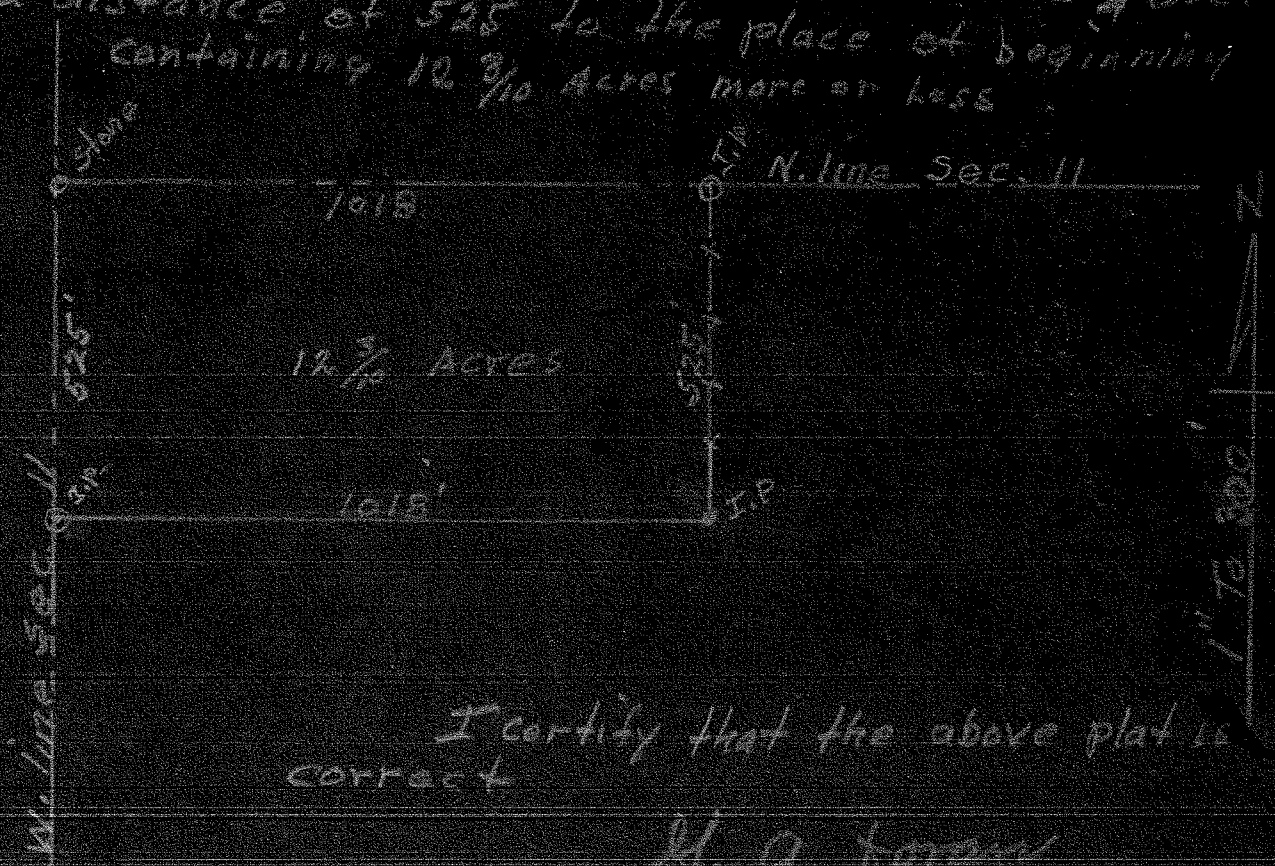 distance of 525 to the place of beginning
containing 12 3/10 Acres more or Less
Stone
I.P.
N. line Sec. 11
1018
N
525'
12 3/10 Acres
525
I.P.
1018'
I.P
1" To 300'
W. line Sec 11
I certify that the above plat is
correct